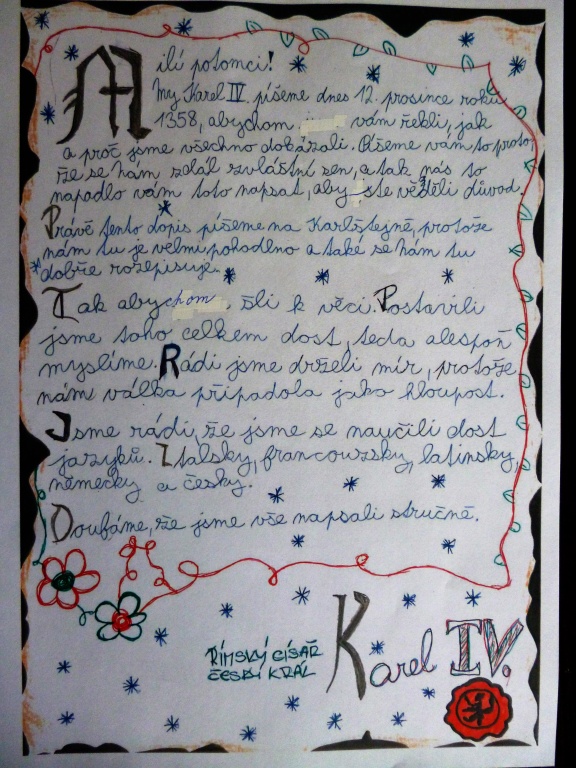 Milí potomci!
My, Karel IV. píšeme dnes 12. prosince roku
1358, abychom vám řekli, jak
a proč jsme všechno dokázali. Píšeme vám to proto,
že se nám zdál zvláštní sen, a tak nás to
napadlo vám toto napsat, aby ste věděli důvod.
Právě tento dopis píšeme na Karlštejně, protože
nám tu je velmi pohodlno a také se nám tu
dobře rozepisuje.
Tak abychom šli k věci. Postavili
jsme toho celkem dost, teda alespoň
myslíme. Rádi jsme drželi mír, protože
nám válka připadola jako hloupost.
Jsme rádi, že jsme se naučili dost
jazyků. Italsky, francouzsky, latinsky,
německy a česky.
Doufáme, že jsme vše napsali stručně.
ŘÍMSKÝ CÍSAŘ
ČESKÝ KRÁL
Karel IV.